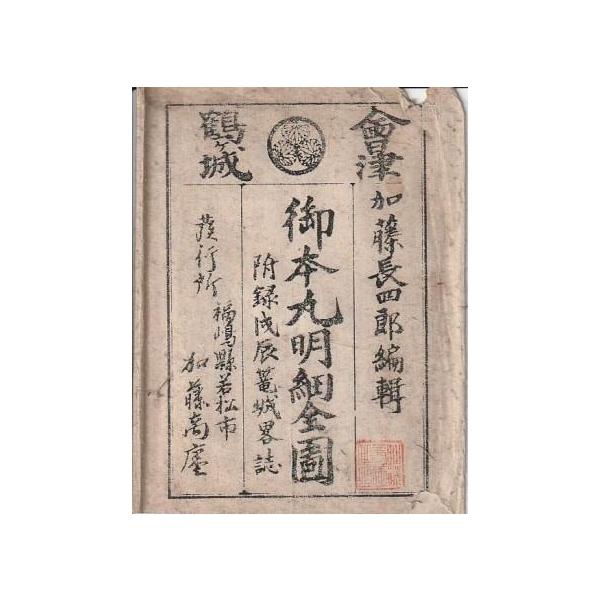 會津
加藤長四郎編輯
御本丸明細全圖
附録戊辰篭城畧誌
鶴ヶ城
發行所
福嶋縣若松市
加藤商廛